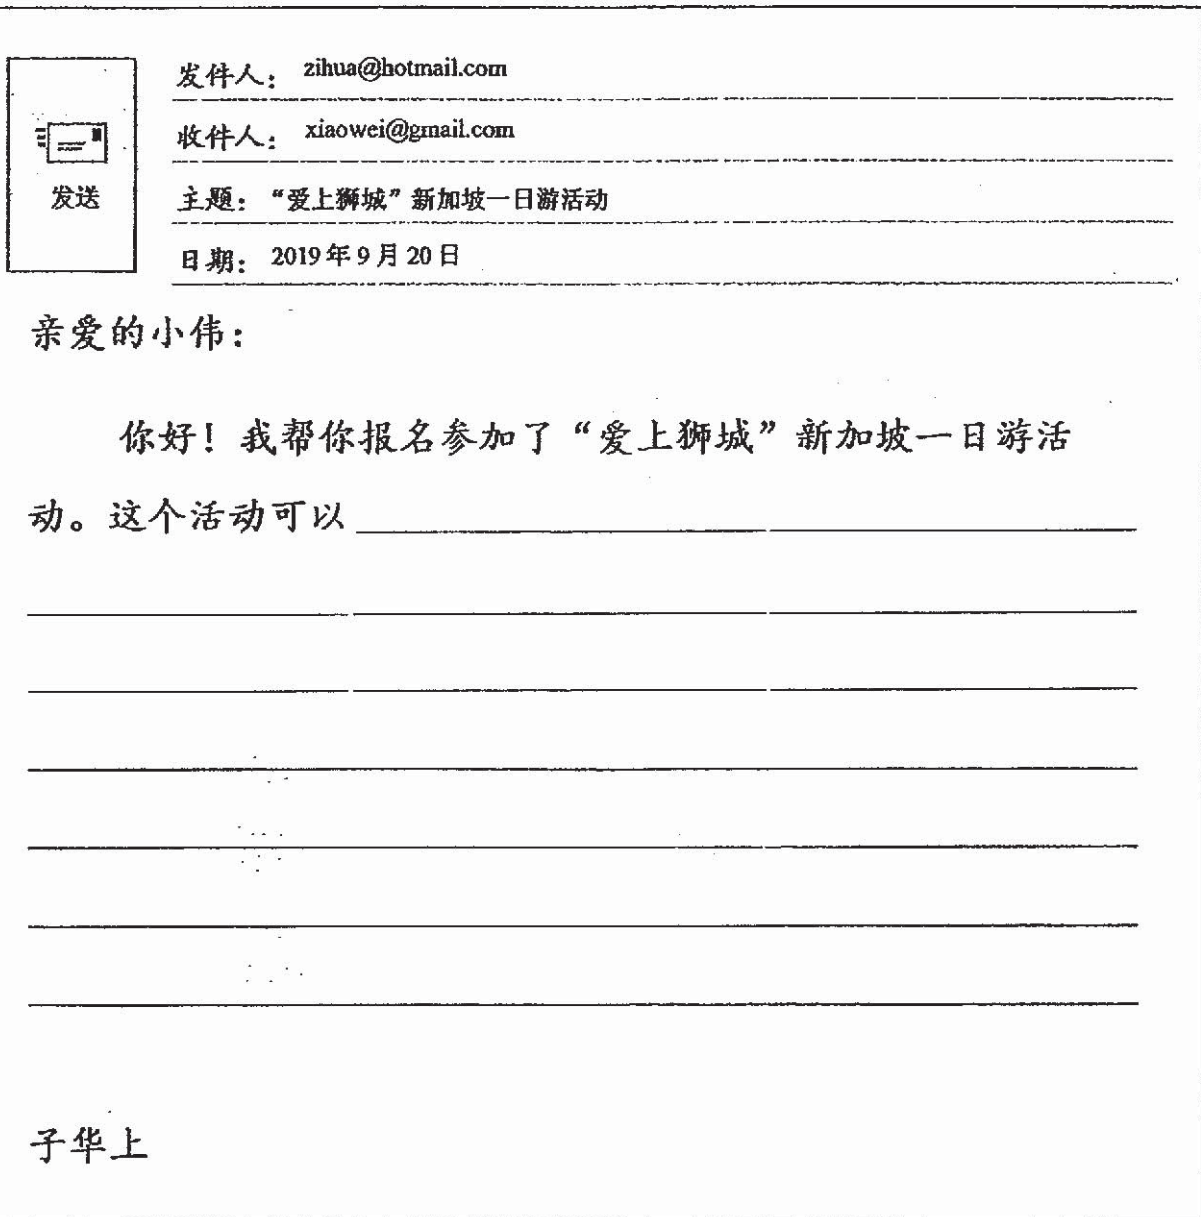 发件人： zihua@hotmail.com
收件人： xiaowei@gmail.com
发送
主题： “爱上狮城”新加坡一日游活动
日期： 2019年9月20日
亲爱的小伟：
你好！我帮你报名参加了“爱上狮城”新加坡一日游活
动。这个活动可以
子华上